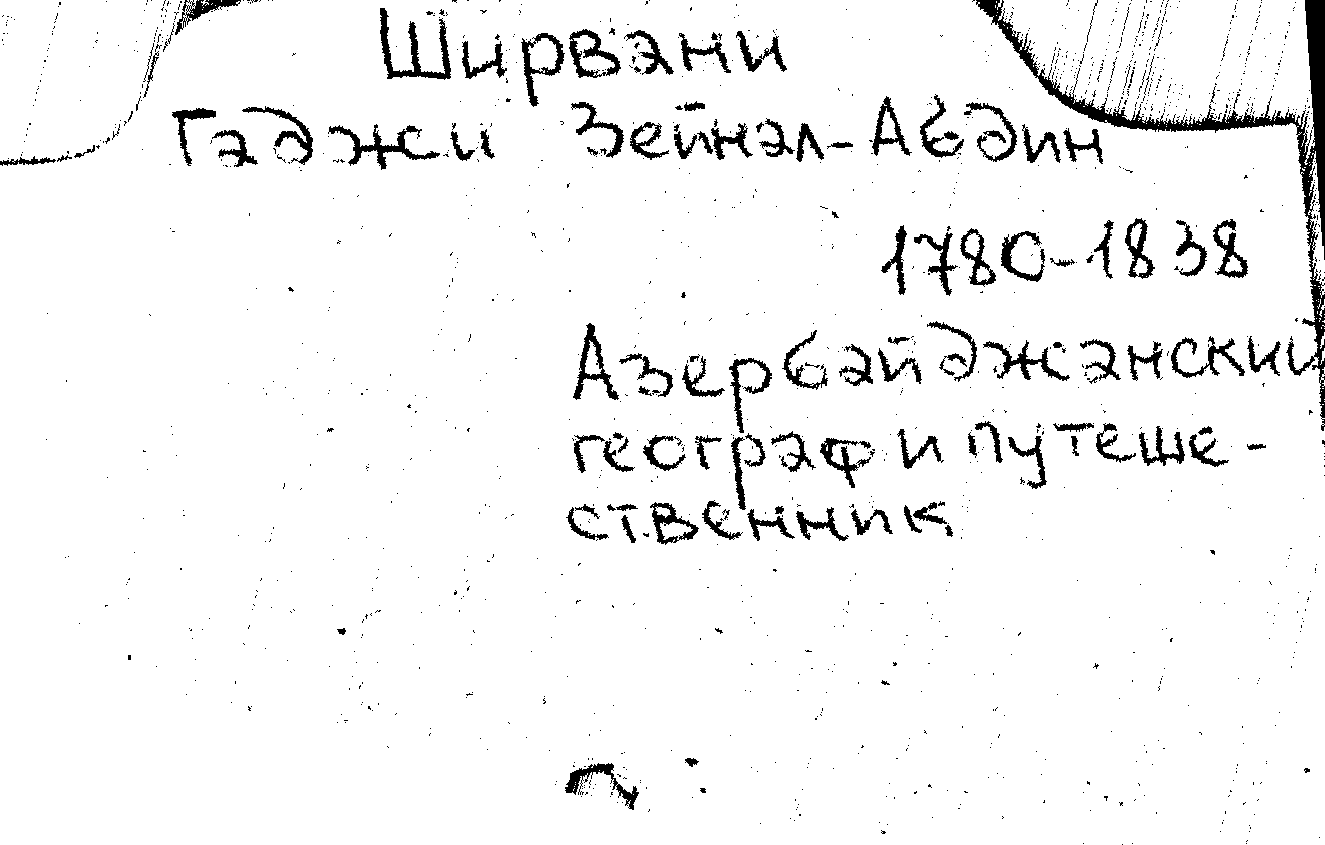 Ширвани
Гаджи Зейнал-Абдин
1780-1838
Азербайджанский
географ и путеше-
ственник